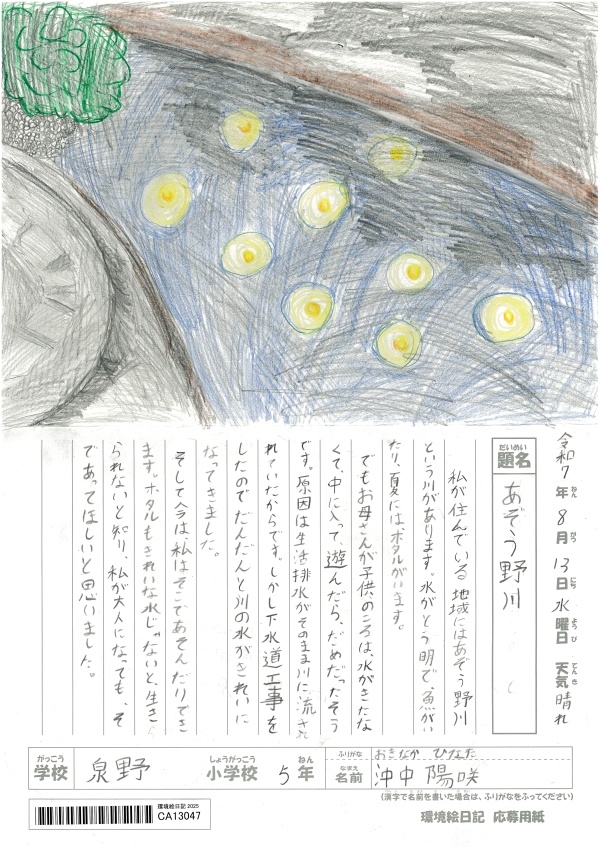 令和7年8月13日水曜日 天気晴れ
ねん がつ にち ようび てんき
だいめい
題名 あぞう野川
私が住んでいる地域にはあぞう野川
という川があります。水がとう明で、魚がい
たり、夏にはホタルがいます。
でもお母さんが子供のころは、水がきたな
くて、中に入って、遊んだら、だめだったそう
です。原因は生活排水がそのまま川に流さ
れていたからです。しかし下水道工事を
したのでだんだんと川の水がきれいに
なってきました。
そして今は私はそこであそんだりでき
ます。ホタルもきれいな水じゃないと、生き
られないと知り、私が大人になっても、そう
であってほしいと思いました。
がっこう しょうがっこう ねん
学校 泉野 小学校 5年
ふりがな おきなか ひなた
なまえ
名前 沖中 陽咲
(漢字で名前を書いた場合は、ふりがなをふってください)
環境絵日記 2025
CA13047
環境絵日記 応募用紙